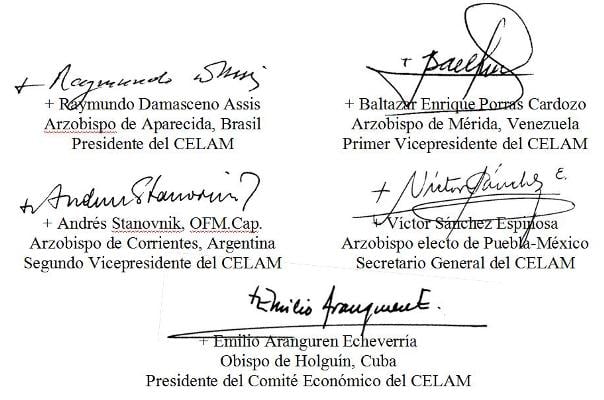 + Raymundo Damasceno Assis
Arzobispo de Aparecida, Brasil
Presidente del CELAM
+ Baltazar Enrique Porras Cardozo
Arzobispo de Mérida, Venezuela
Primer Vicepresidente del CELAM
+ Andrés Stanovnik, OFM.Cap.
Arzobispo de Corrientes, Argentina
Segundo Vicepresidente del CELAM
+ Víctor Sánchez E.
+ Víctor Sánchez Espinosa
Arzobispo electo de Puebla-México
Secretario General del CELAM
+ Emilio Aranguren E.
+ Emilio Aranguren Echeverría
Obispo de Holguín, Cuba
Presidente del Comité Económico del CELAM